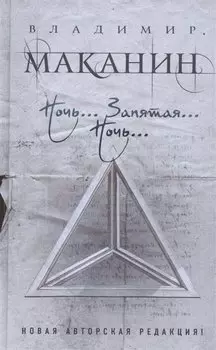 ВЛАДИМИР
МАКАНИН
Ночь... Запятая...
Ночь...
НОВАЯ АВТОРСКАЯ РЕДАКЦИЯ!